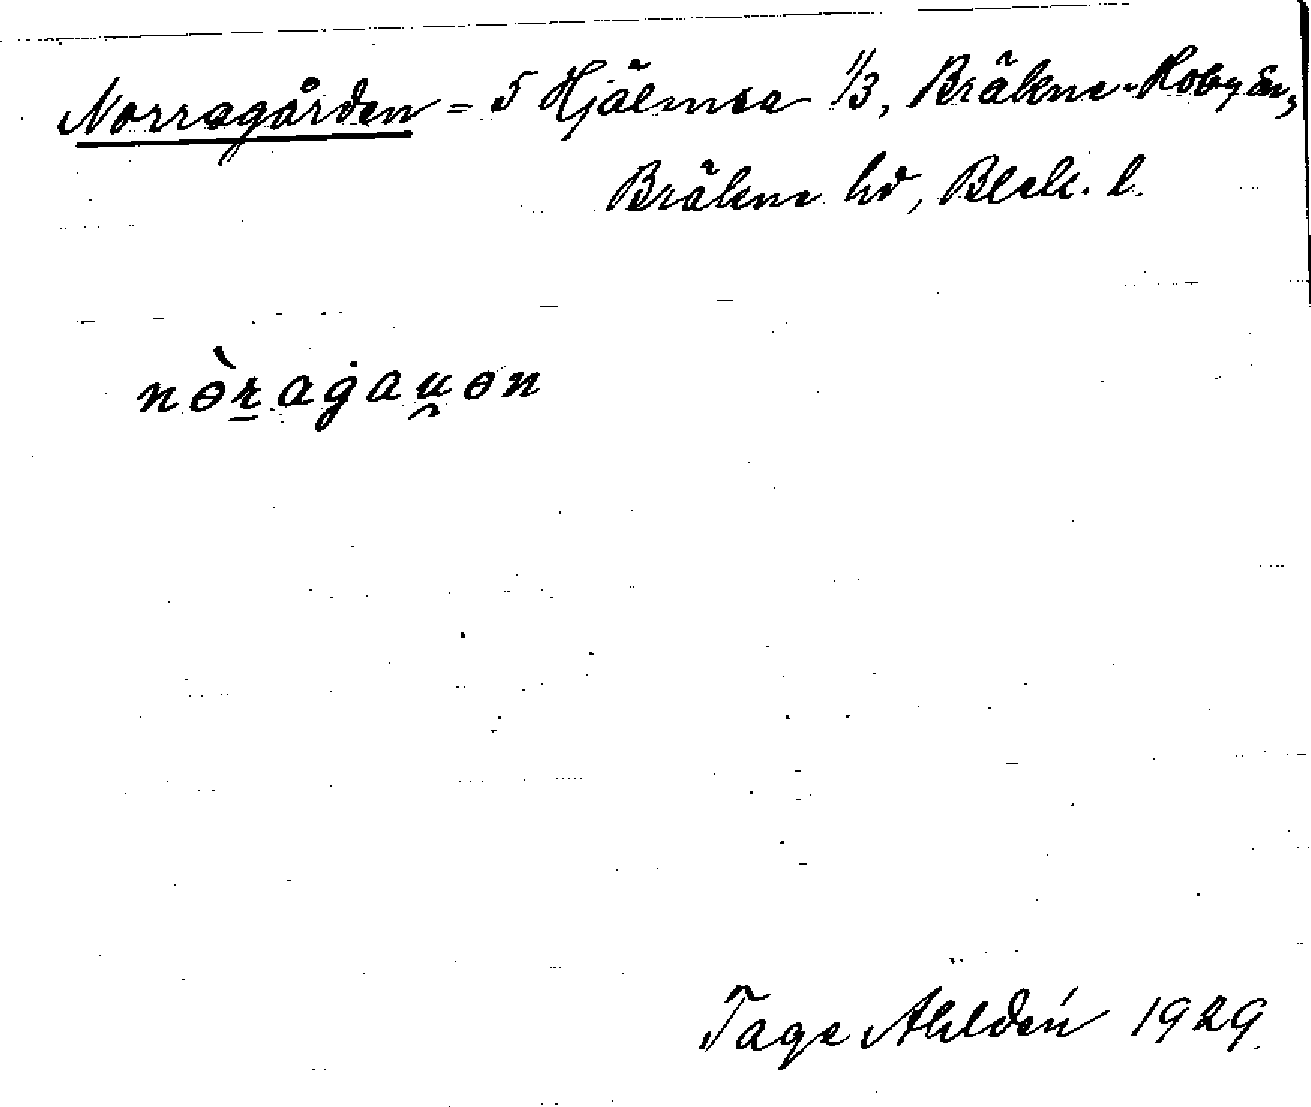 Norragården = 5 Hjälmsa 1/3, Bräkne-Hoby sn,
Bräkne hd, Blek. l.
nɵ̀r̲aġau̯ɵn
Tage Ahldén 1929.